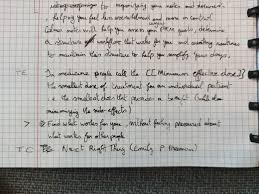 to organizing your notes and
helping you feel less overwhelmed and more in control
notes will help you assess your goals, determine
a structure & workflow that works for you and creating routines
to maintain this structure to help you simplify your days.
TE In medicine people call the [[Minimum effective dose]]
the smallest dose of treatment for an individual patient
i.e. the smallest dose that provides a benefit (while also
minimizing the side-effects)
> Find what works for you, without feeling pressured about
what works for other people
TC Next Right Thing (Emily P Freeman)